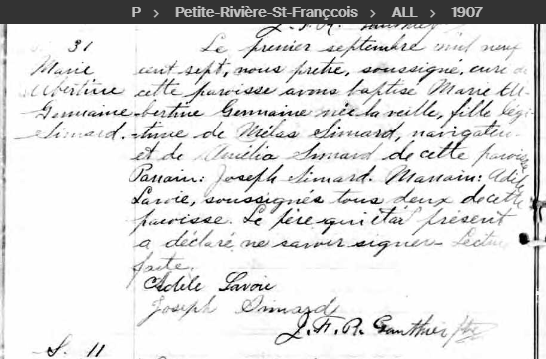 P > Petite-Rivière-St-Franççois > ALL > 1907
J. F. R. Gauthier
31
Marie
Albertine
Germaine
Simard.
Le premier septembre mil neuf
cent sept, nous prêtre, soussigné, curé de
cette paroisse avons baptisé Marie Al-
bertine Germaine née la veille, fille légi-
time de Mélas Simard, navigateur
et de Amélia Simard de cette paroisse
Parrain: Joseph Simard. Marraine: Adèle
Lavoie, soussignés tous deux de cette
paroisse. Le père qui était présent
a déclaré ne savoir signer. Lecture
faite.
Adèle Lavoie
Joseph Simard
J. F. R. Gauthier Ptre
S. 11